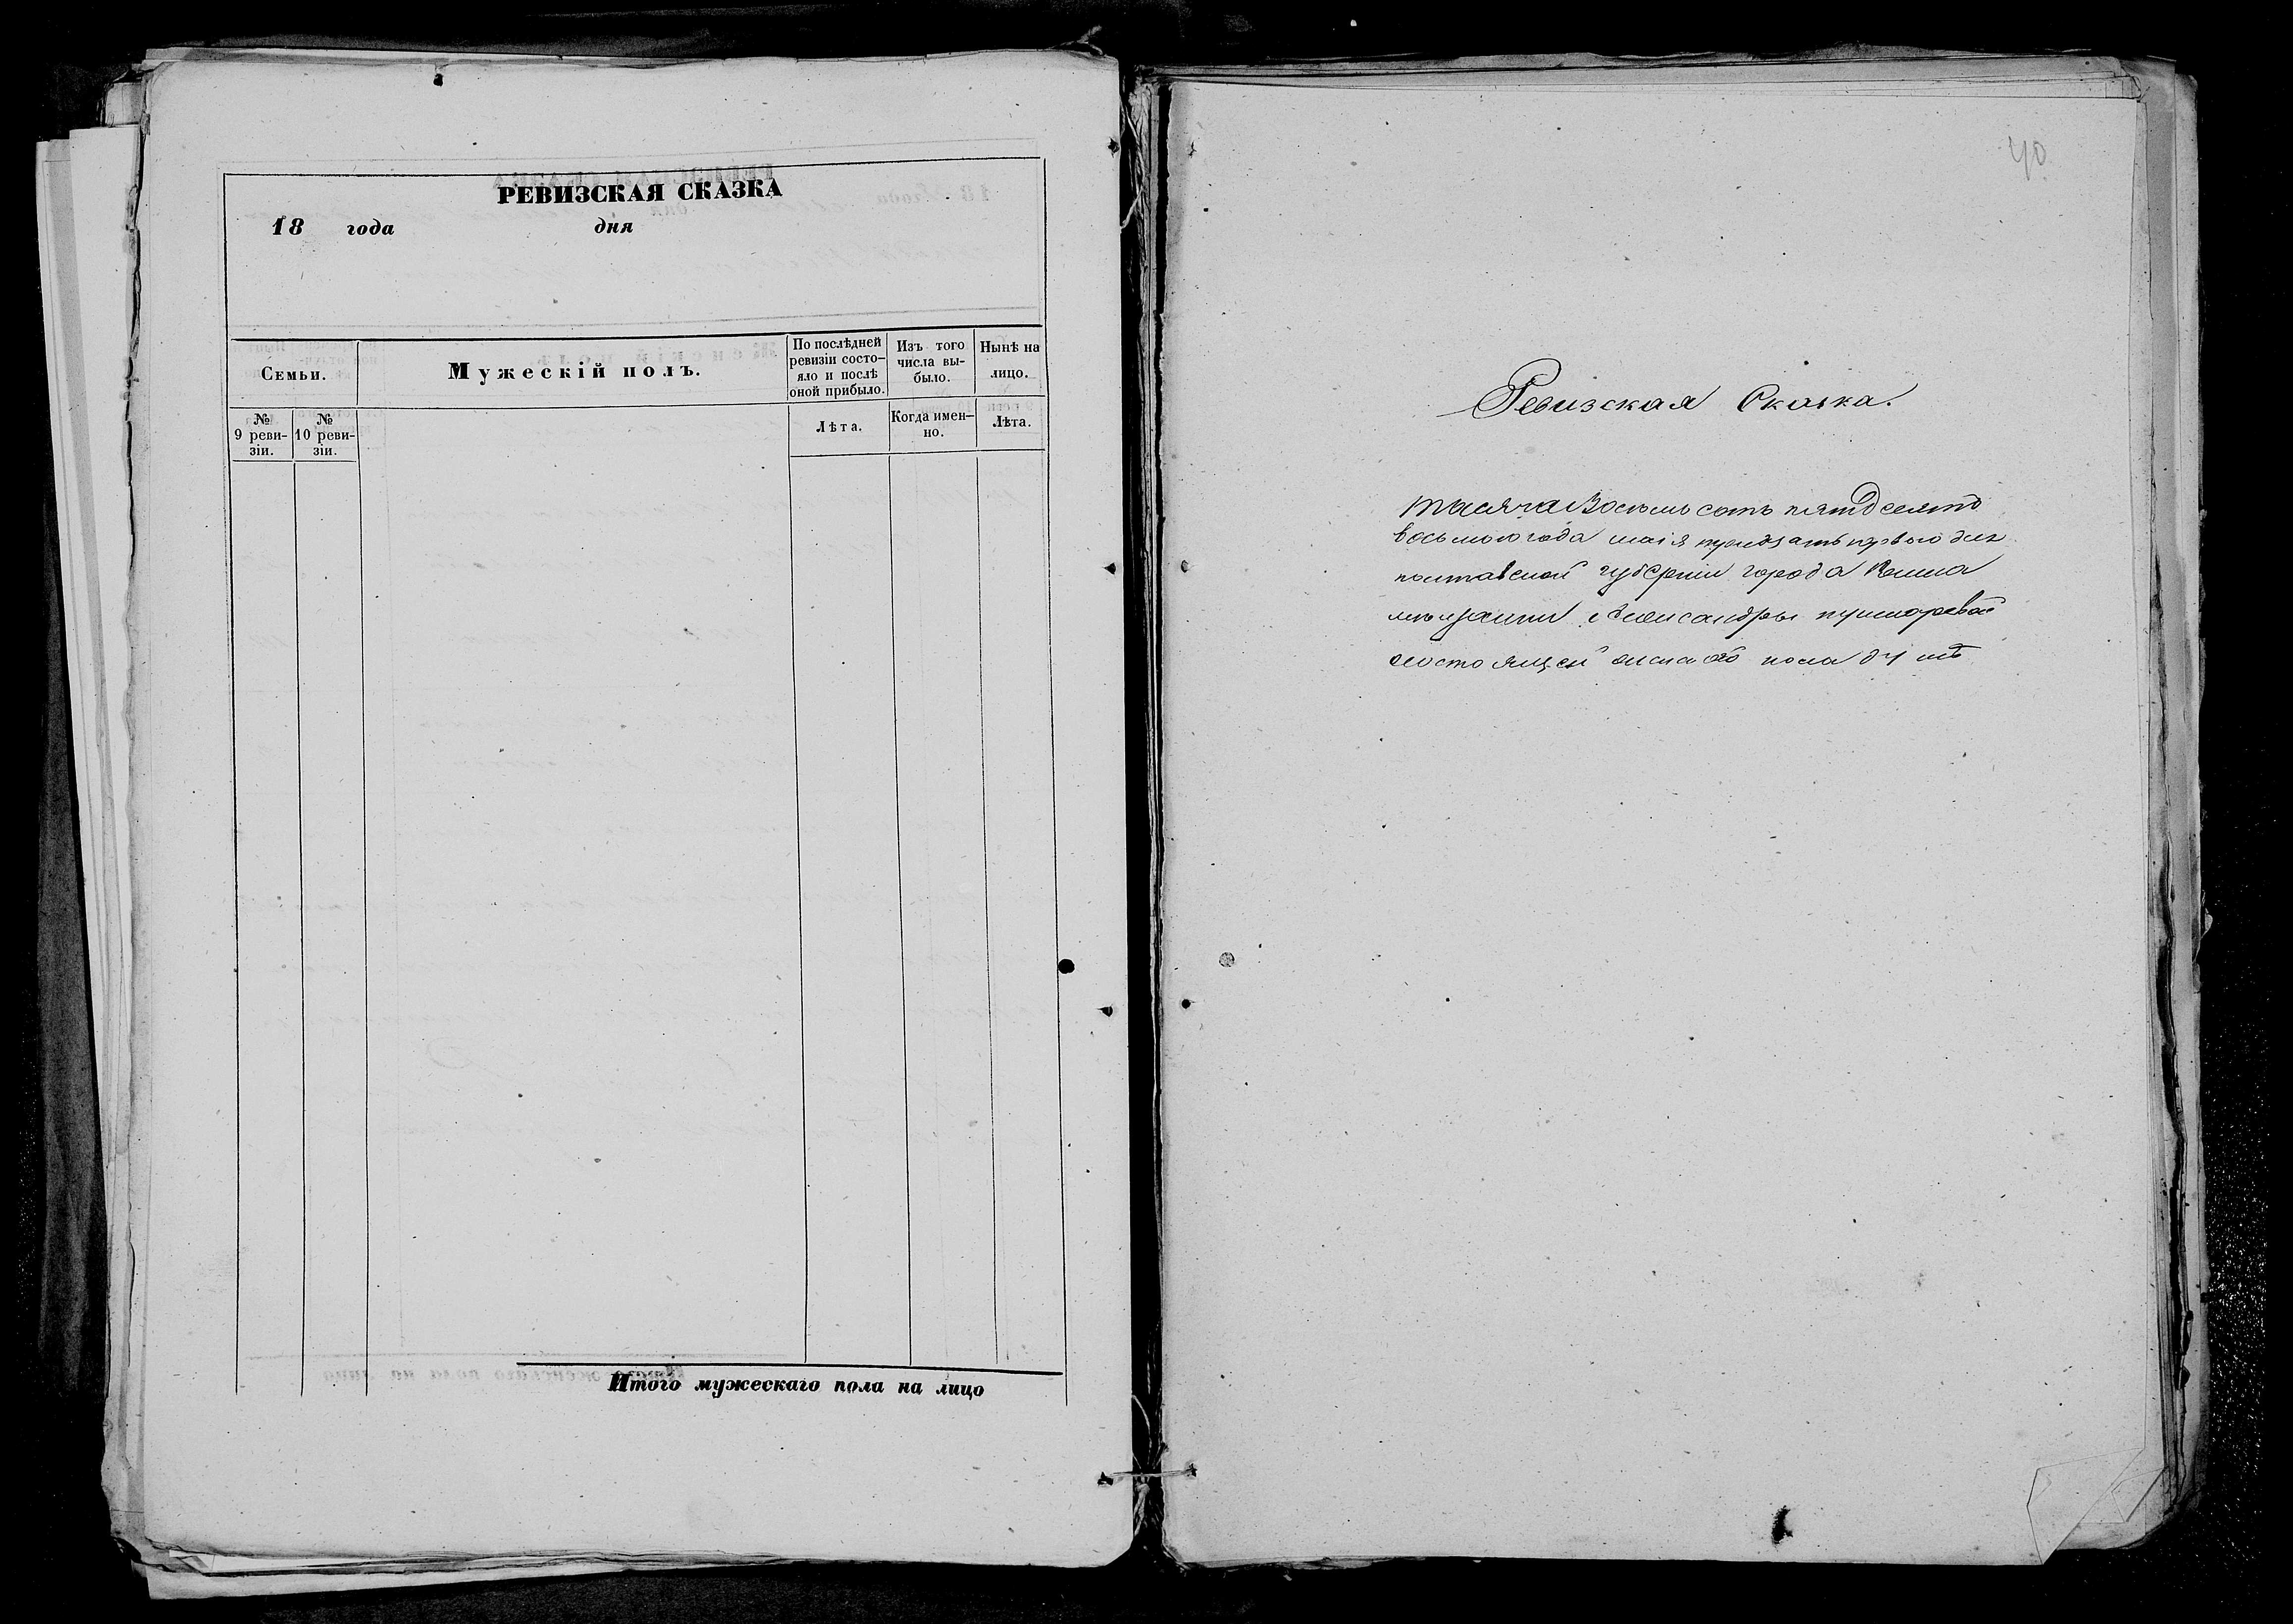 РЕВИЗСКАЯ СКАЗКА
18 года дня
Семьи.
Мужескій полъ.
По послѣдней
ревизіи состо-
яло и послѣ
оной прибыло.
Изъ того
числа вы-
было.
Нынѣ на
лицо.
№
9 реви-
зіи.
№
10 реви-
зіи.
Лѣта.
Когда имен-
но.
Лѣта.
Итого мужескаго пола на лицо
40
Ревизская Сказка.
тысяча восемь сотъ пятдесятъ
восьмого года маія тридцать первого дня
полтавской губерніи города
Александры
состоящей пола